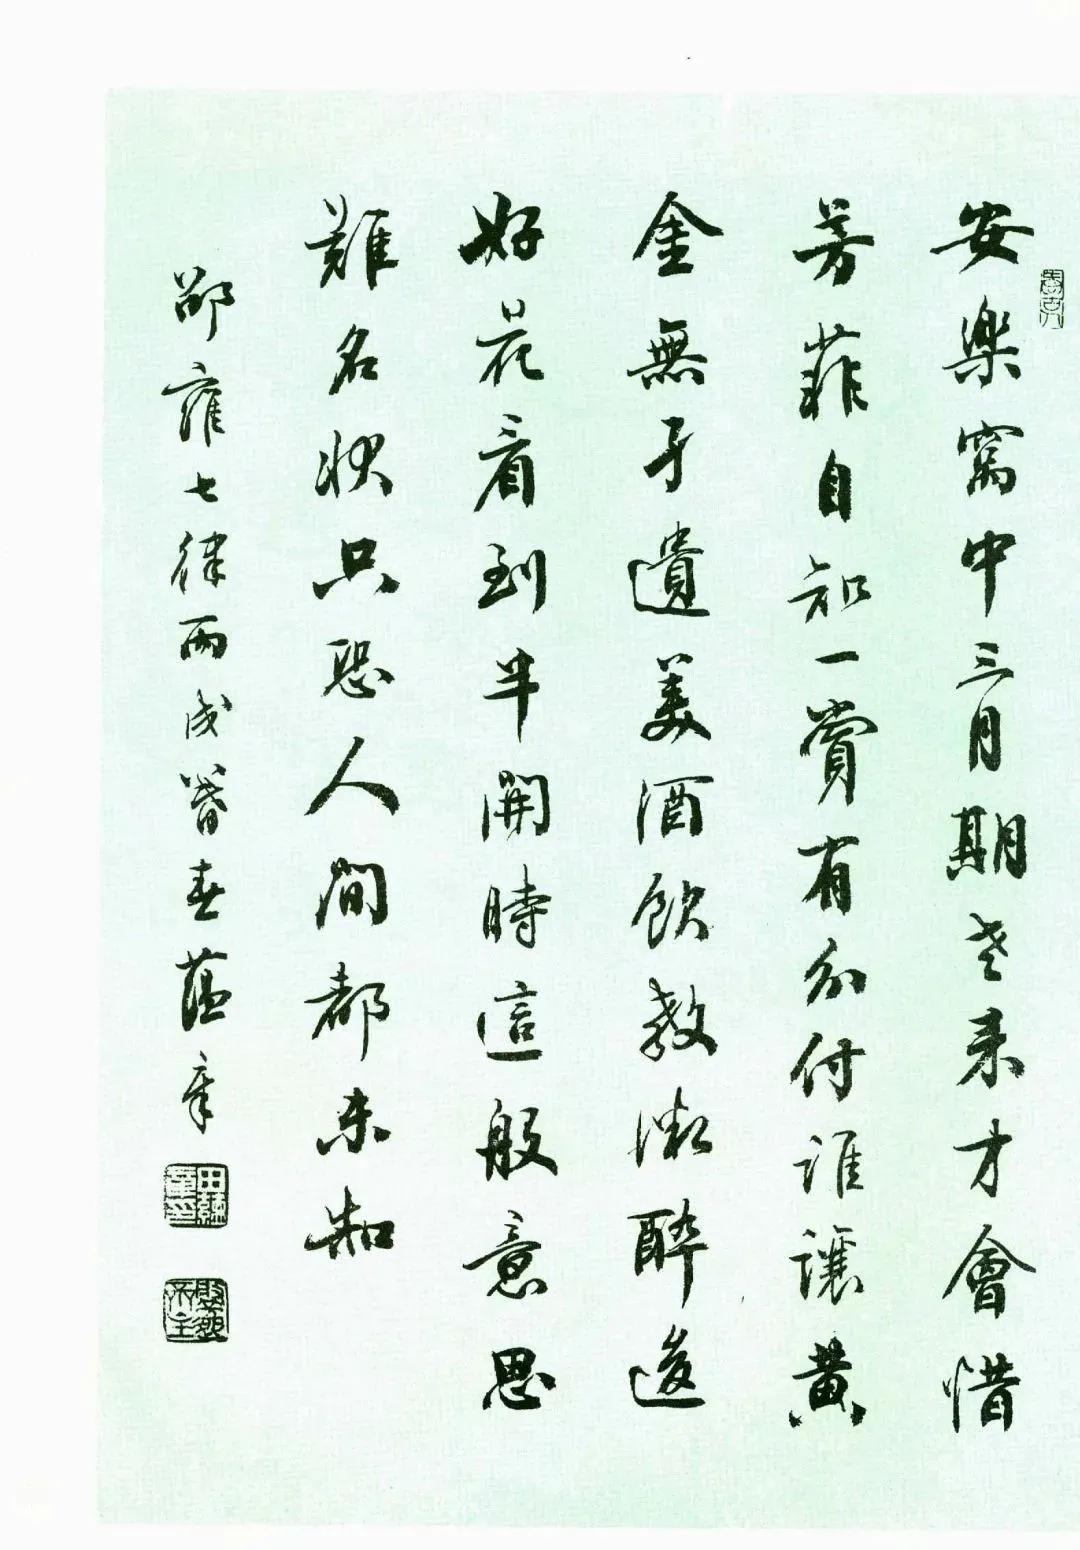 安樂窩中三月期老來才會惜
芳菲自知一賞有分付誰讓黃
金無孑遺美酒飲教微醉後
好花看到半開時這般意思
難名狀只恐人間都未知
邵雍七律丙戌暮春蘊章
田蘊章印